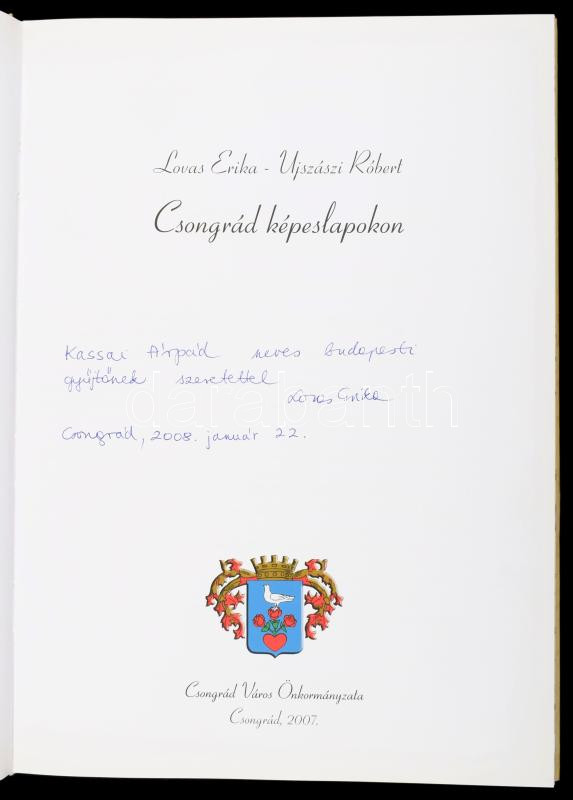 Lovas Erika - Ujszászi Róbert
Csongrád képeslapokon
Kassai Árpád neves budapesti
gyűjtőnek szeretettel
Lovas Erika
darabanth
Csongrád, 2008. január 22.
Csongrád Város Önkormányzata
Csongrád, 2007.